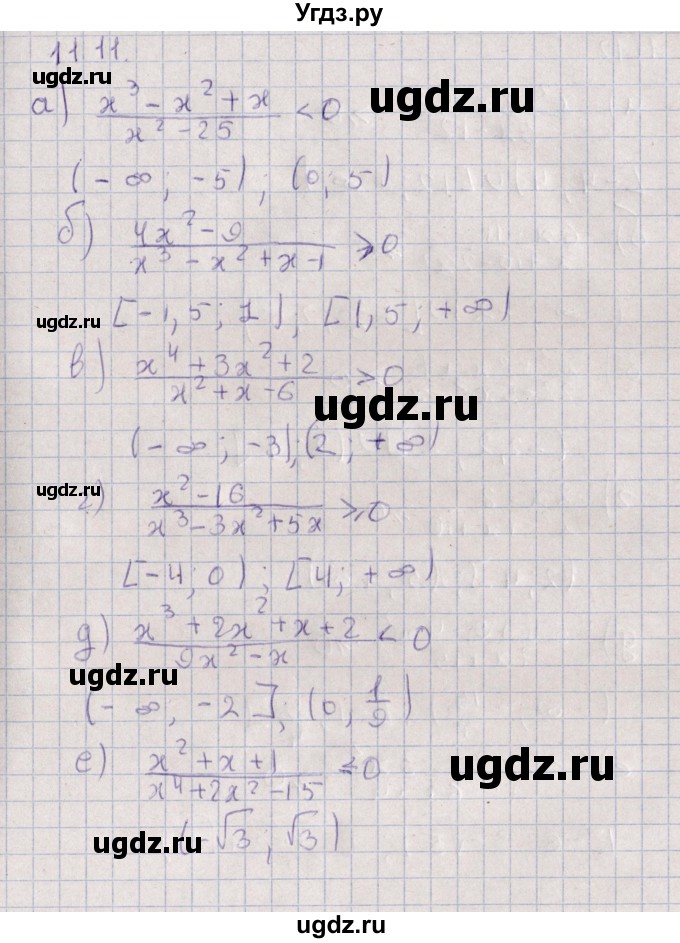 Угдз.ру
11.11.
а) (x³ - x² + x)/(x² - 25) < 0
ugdz.ru
ugdz.ru
(-∞; -5); (0; 5)
б) (4x² - 9)/(x³ - x² + x - 1) ⩾ 0
ugdz.ru
[-1,5; 1); [1,5; +∞)
в) (x⁴ + 3x² + 2)/(x² + x - 6) > 0
ugdz.ru
(-∞; -3); (2; +∞)
ugdz.ru
г) (x² - 16)/(x³ - 3x² + 5x) ⩾ 0
[-4; 0); [4; +∞)
д) (x³ + 2x² + x + 2)/(9x² - x) < 0
ugdz.ru
(-∞; -2]; (0; 1/9)
е) (x² + x + 1)/(x⁴ + 2x² - 15) ⩽ 0
ugdz.ru
ugdz.ru
(-√3; √3)
ugdz.ru